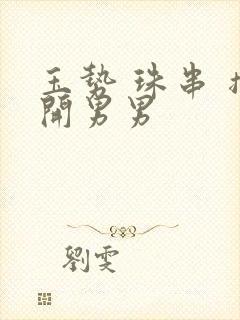 玉势 珠串 扌
開男男
劉雯